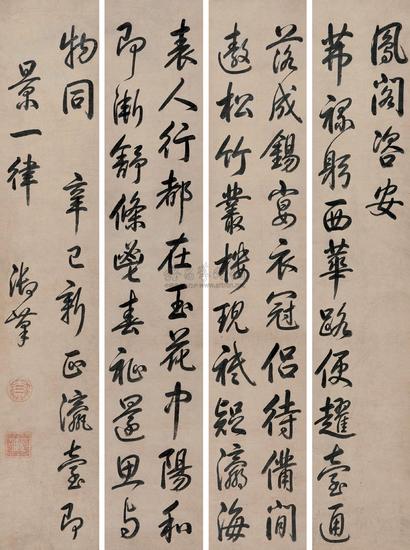 鳳閣咨安
茀祿躬西華路便趯臺通
落成錫宴衣冠侶待備閒
遨松竹叢樓現祗疑瀛海
表人行都在玉花中陽和
即漸舒條鬯春祉還思與
物同 辛巳新正瀛臺即
景一律
御筆